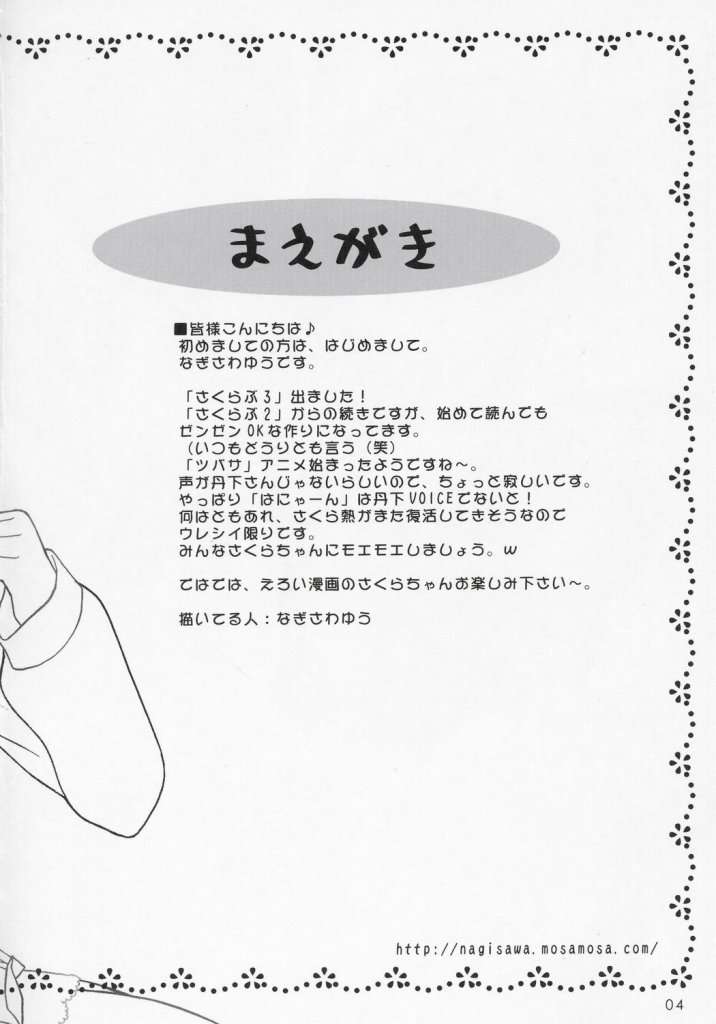 まえがき
■皆様こんにちは♪
初めましての方は、はじめまして。
なぎさわゆうです。
「さくらぶ3」出ました!
「さくらぶ2」からの続きですが、始めて読んでも
ゼンゼンOKな作りになってます。
(いつもどうりとも言う(笑)
「ツバサ」アニメ始まったようですね〜。
声が丹下さんじゃないらしいので、ちょっと寂しいです。
やっぱり「はにゃーん」は丹下VOICEでないと!
何はともあれ、さくら熱がまた復活してきそうなので
ウレシイ限りです。
みんなさくらちゃんにモエモエしましょう。w
ではでは、えろい漫画のさくらちゃんお楽しみ下さい〜。
描いてる人:なぎさわゆう
http://nagisawa.mosamosa.com/
04